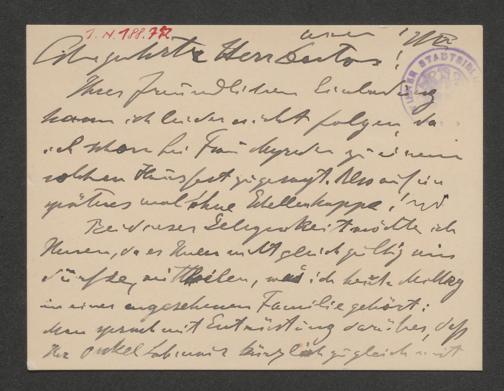 I. N. 188.772
WIENER STADTBIBL
Herr Doctor!
Ihrer freundlichen Einladung
kann ich leider nicht folgen, da
ich schon bei Frau zu einem
solchen zugesagt. Also auf ein
späteres mal ohne
Bei dieser Gelegenheit möchte ich
Ihnen, da es Ihnen nicht gleichgültig sein
dürfte, mittheilen, was ich heute Mittag
in einer angesehenen Familie gehört:
Man sprach mit Entrüstung darüber, daß
Ihr Onkel kürzlich zugleich mit